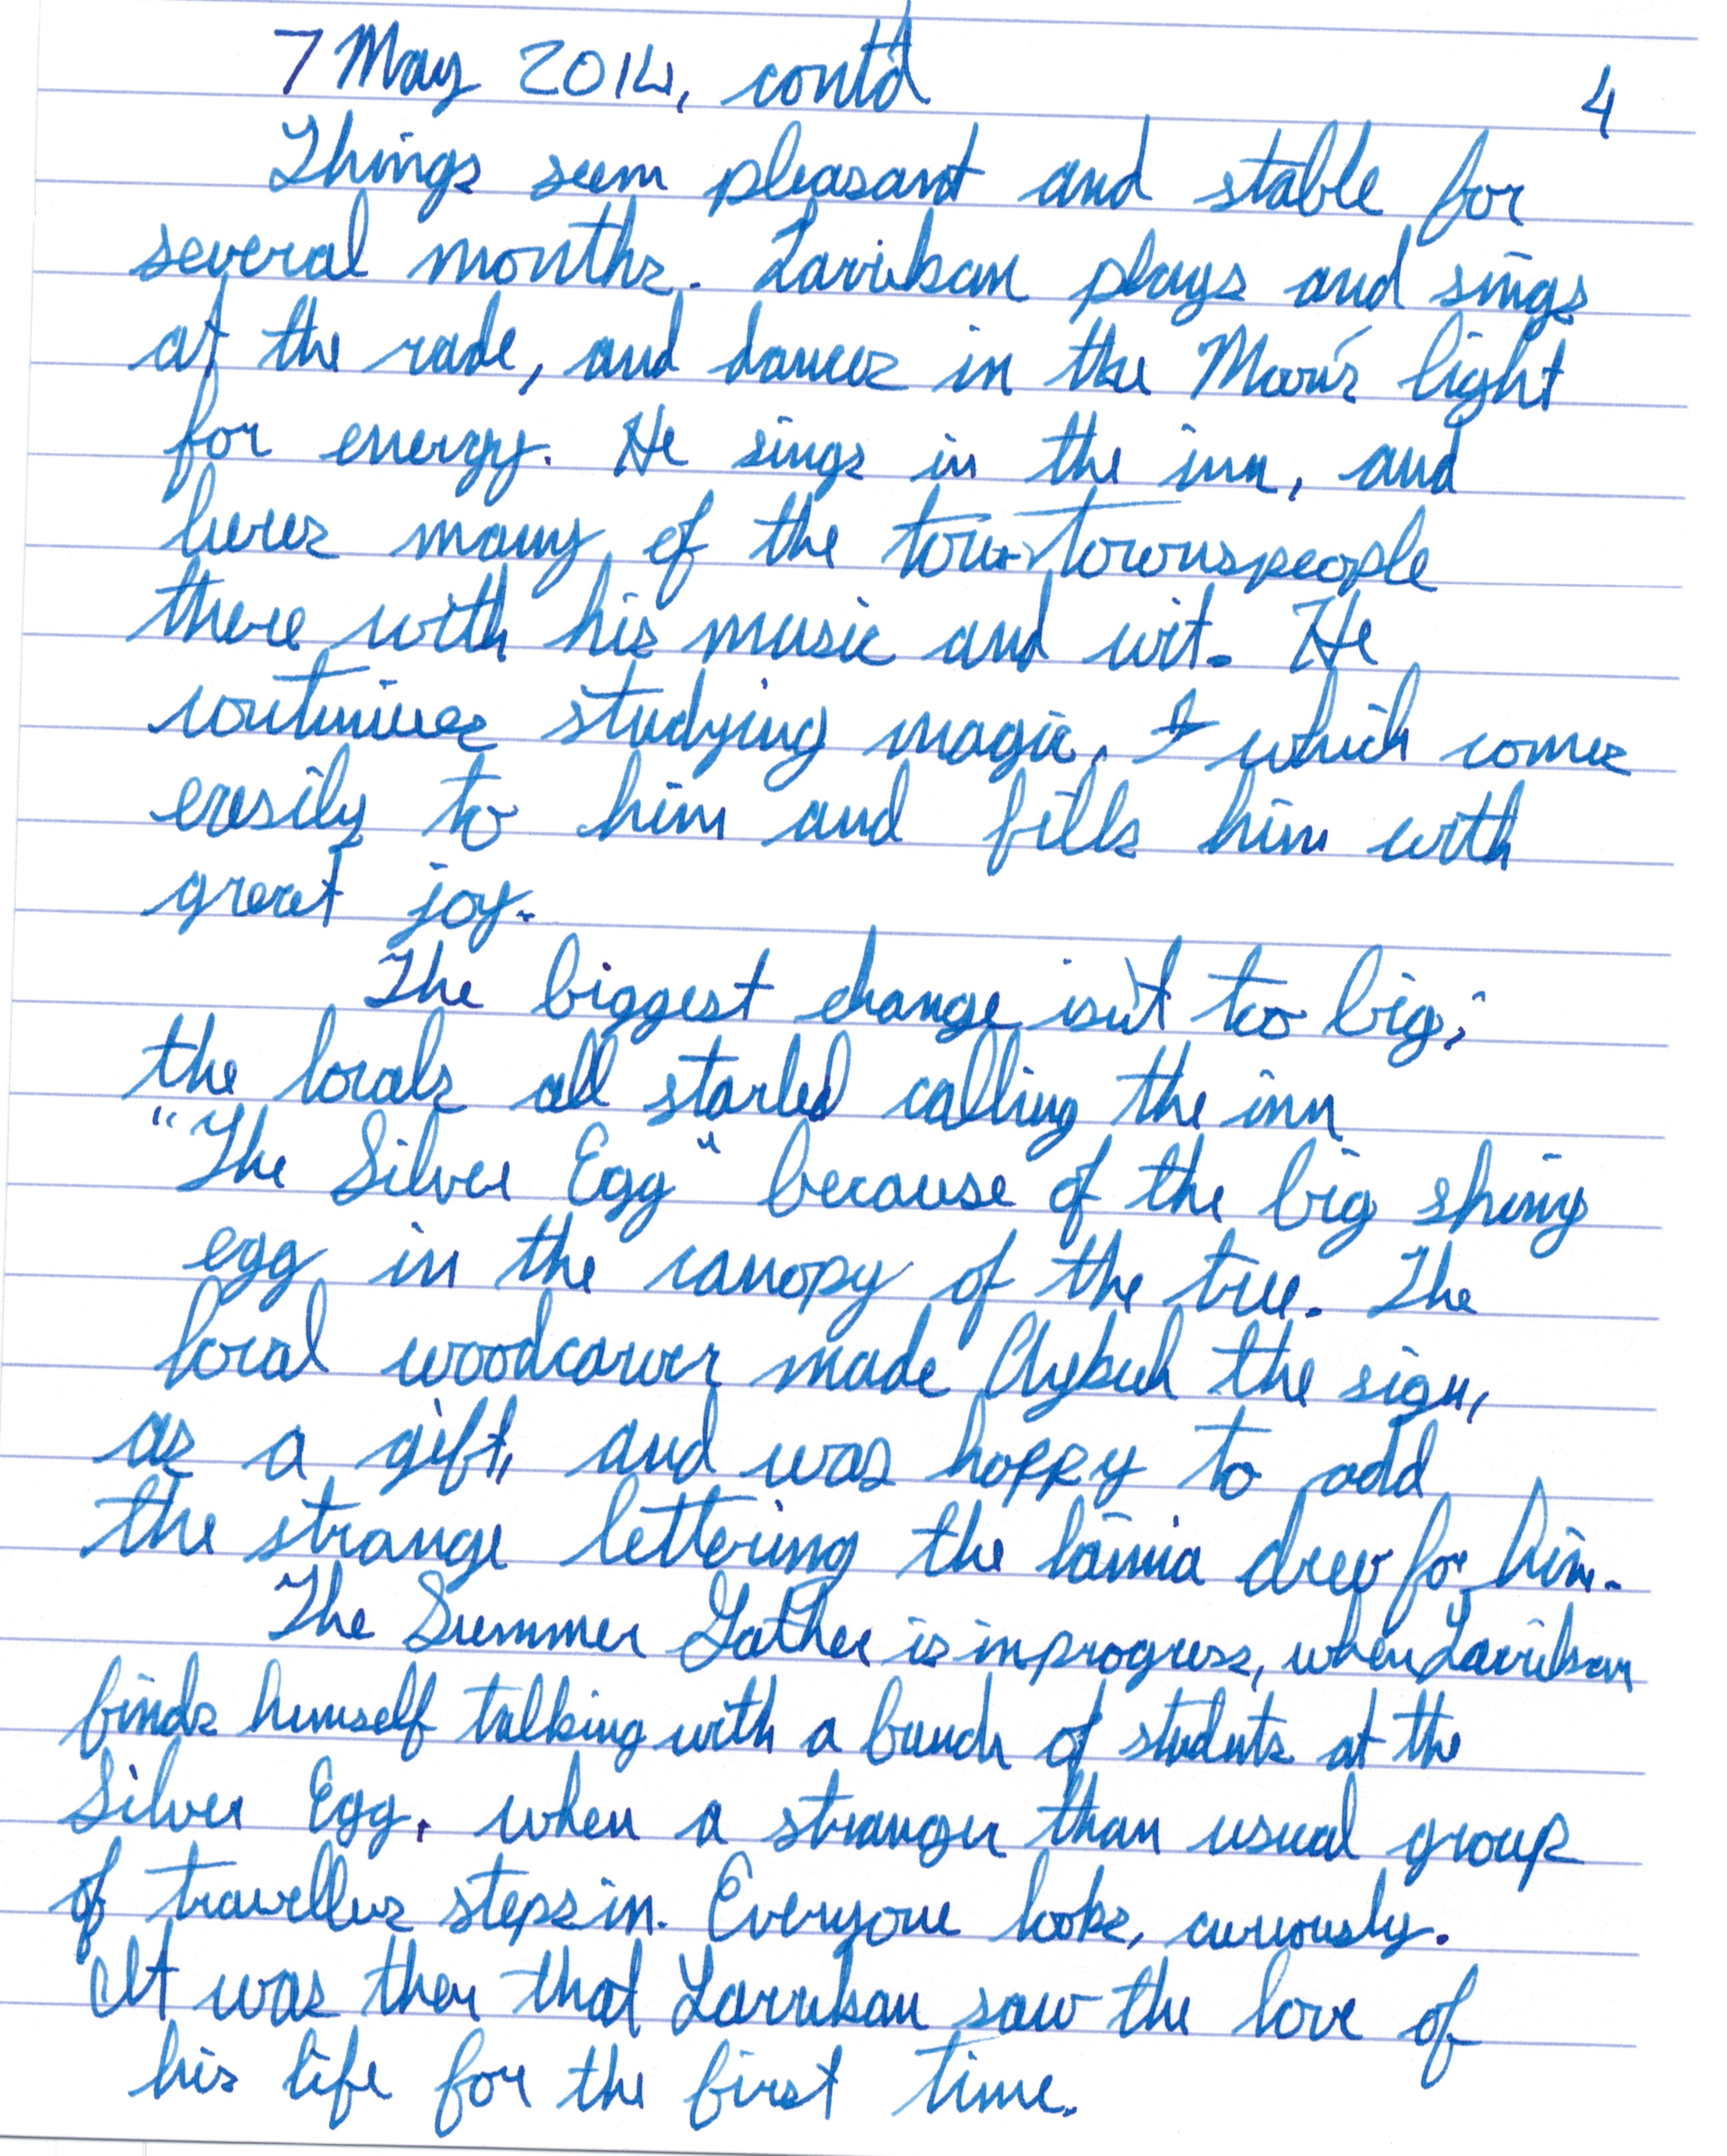 7 May 2014, cont'd
4
Things seem pleasant and stable for
several months. Larrikan plays and sings
at the rade, and dances in the Moon's light
for energy. He sings in the inn, and
lures many of the town townspeople
there with his music and wit. He
continues studying magic, which comes
easily to him and fills him with
great joy.
The biggest change isn't too big;
the locals all started calling the inn
"The Silver Egg" because of the big shiny
egg in the canopy of the tree. The
local woodcarver made the sign,
as a gift, and was happy to add
the strange lettering the lamia drew for him.
The Summer Gather is in progress, when Larrikan
finds himself talking with a bunch of students at the
Silver Egg, when a stranger than usual group
of travellers steps in. Everyone looks, curiously.
It was then that Larrikan saw the love of
his life for the first time.